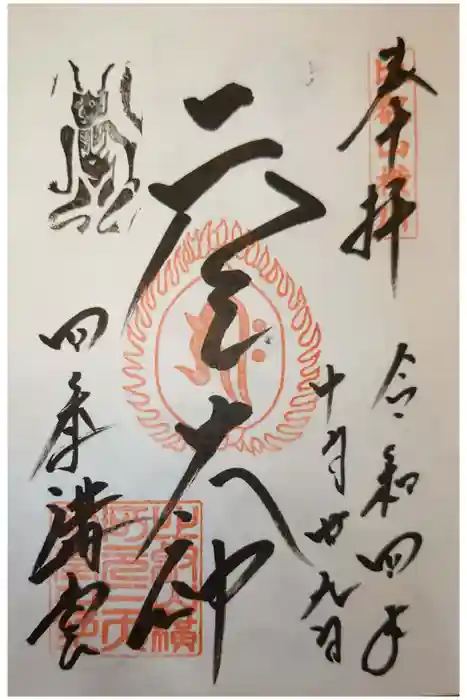 奉拝
令和四年
十月廿九日
元三大師
四季講堂